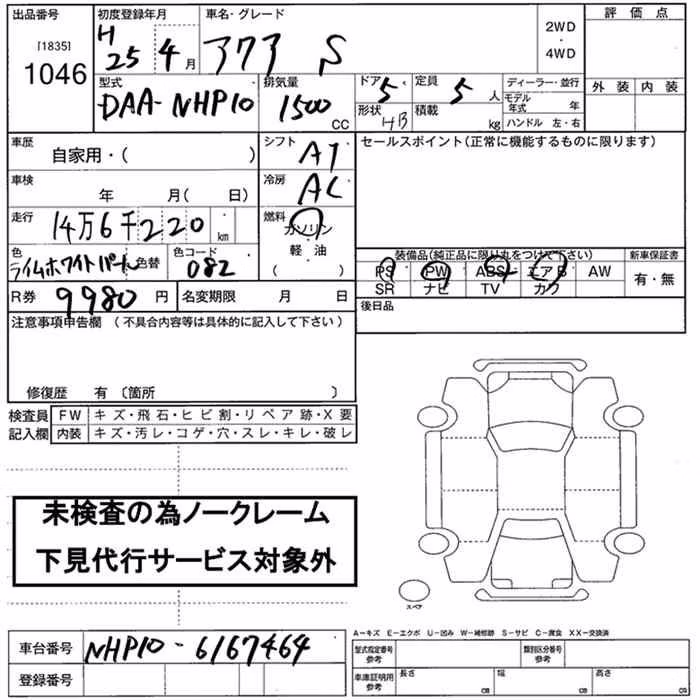 出品番号 初度登録年月 車名・グレード 2WD ・ 4WD 評価点
[1835] 1046 H 25 4月 アクア S
外装 内装
型式 DAA-NHP10 排気量 1500 CC ドア 5 定員 5 人 ディーラー・並行
形状 HB 積載 kg モデル年式 年
ハンドル 左・右
車歴 自家用・( ) シフト AT セールスポイント(正常に機能するものに限ります)
車検 年 月( 日) 冷房 AC
走行 14万6千220 km 燃料 ガソリン
軽油
( )
色 ライムホワイトパール 色替 色コード 082
装備品(純正品に限り丸をつけて下さい) 新車保証書
PS PW ABS エアB AW 有・無
SR ナビ TV カワ
R券 9980 円 名変期限 月 日 後日品
注意事項申告欄 (不具合内容等は具体的に記入して下さい)
修復歴 有 〔箇所 〕
検査員 FW キズ・飛石・ヒビ割・リペア跡・X要
記入欄 内装 キズ・汚レ・コゲ・穴・スレ・キレ・破レ
未検査の為ノークレーム
下見代行サービス対象外
スペア
A-キズ E-エクボ U-凹み W-補修跡 S-サビ C-腐食 XX-交換済
車台番号 NHP10-6167464
登録番号
型式指定番号 参考 類別区分番号 参考
車庫証明用 参考 長さ cm 幅 cm 高さ cm